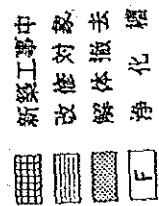 新築工事中
改修対象
解体撤去
F 浄化槽